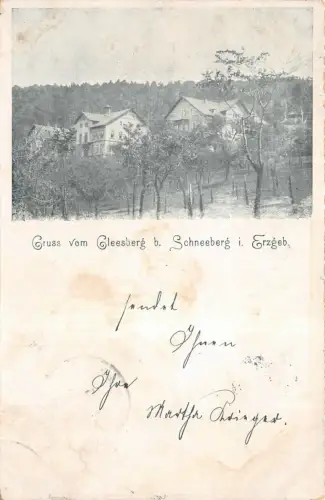 Gruss vom Gleesberg b. Schneeberg i. Erzgeb.
sendet
Ihnen
Ihre
Martha Krieger.